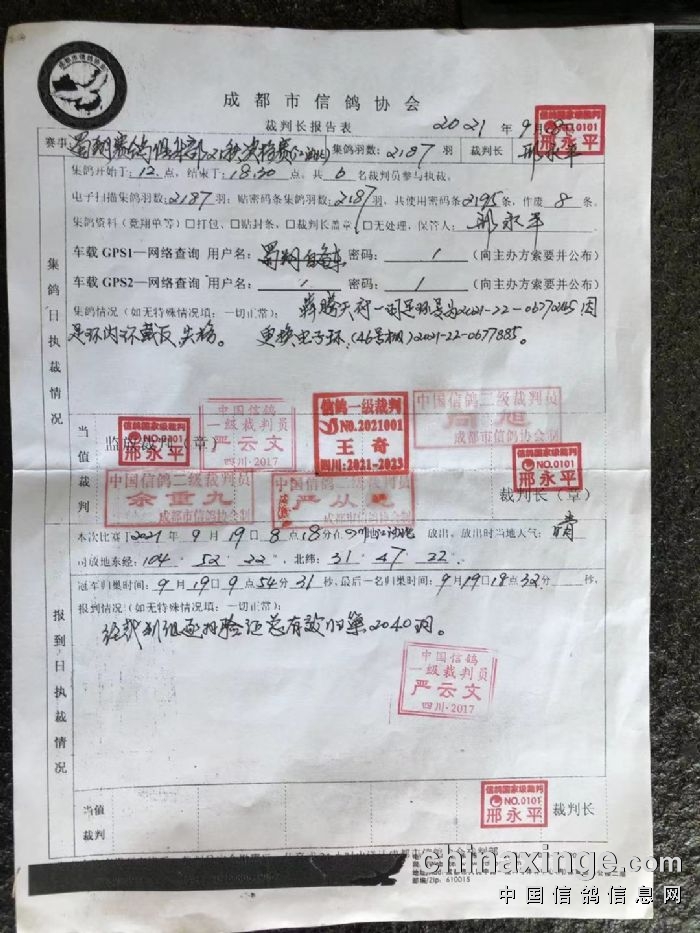 成都市信鸽协会
裁判长报告表 2021年9月8日
赛事 蜀翔赛鸽俱乐部 集鸽羽数:2187羽 裁判长 邢永平
信鸽国家级裁判 NO.0101 邢永平
集鸽开始于:12点,结束于:18:30点,共6名裁判员参与执裁。
电子扫描集鸽羽数:2187羽;贴密码条集鸽羽数:2187羽,共使用密码条2195条,作废8条。
集鸽资料(竞翔单等)□打包、□贴封条、□裁判长盖章、□无处理,保管人:邢永平
车载GPS1—网络查询 用户名:蜀翔 密码:/(向主办方索要并公布)
车载GPS2—网络查询 用户名:/ 密码:/(向主办方索要并公布)
集鸽日执裁情况
集鸽情况(如无特殊情况填:一切正常):腾天府一羽足环号为2021-22-0677245因
足环内环戴反,失格。 更换电子环,(46号棚)2021-22-0677885。
当值裁判
信鸽国家级裁判 NO.0101 邢永平
中国信鸽 一级裁判员 严云文 四川·2017
信鸽一级裁判 NO.2021001 王奇 四川·2021-2023
中国信鸽二级裁判员 周旭 成都市信鸽协会制
裁判(章)
中国信鸽二级裁判员 余重九 成都市信鸽协会制
中国信鸽二级裁判员 严从 成都市信鸽协会制
信鸽国家级裁判 NO.0101 邢永平
裁判长(章)
本次比赛于2021年9月19日8点18分在 放出,放出时当地天气:晴
司放地东经:104°52′22″,北纬:31°47′22″
冠军归巢时间:9月19日9点54分31秒,最后一名归巢时间:9月19日18点32分 秒,
报到日执裁情况
报到情况:(如无特殊情况填:一切正常):
经裁判组逐羽验证总有效归巢2040羽。
中国信鸽 一级裁判员 严云文 四川·2017
当值裁判
信鸽国家级裁判 NO.0101 邢永平
裁判长
邮编/Zip: 610015
chinaxinge.com
中国信鸽信息网